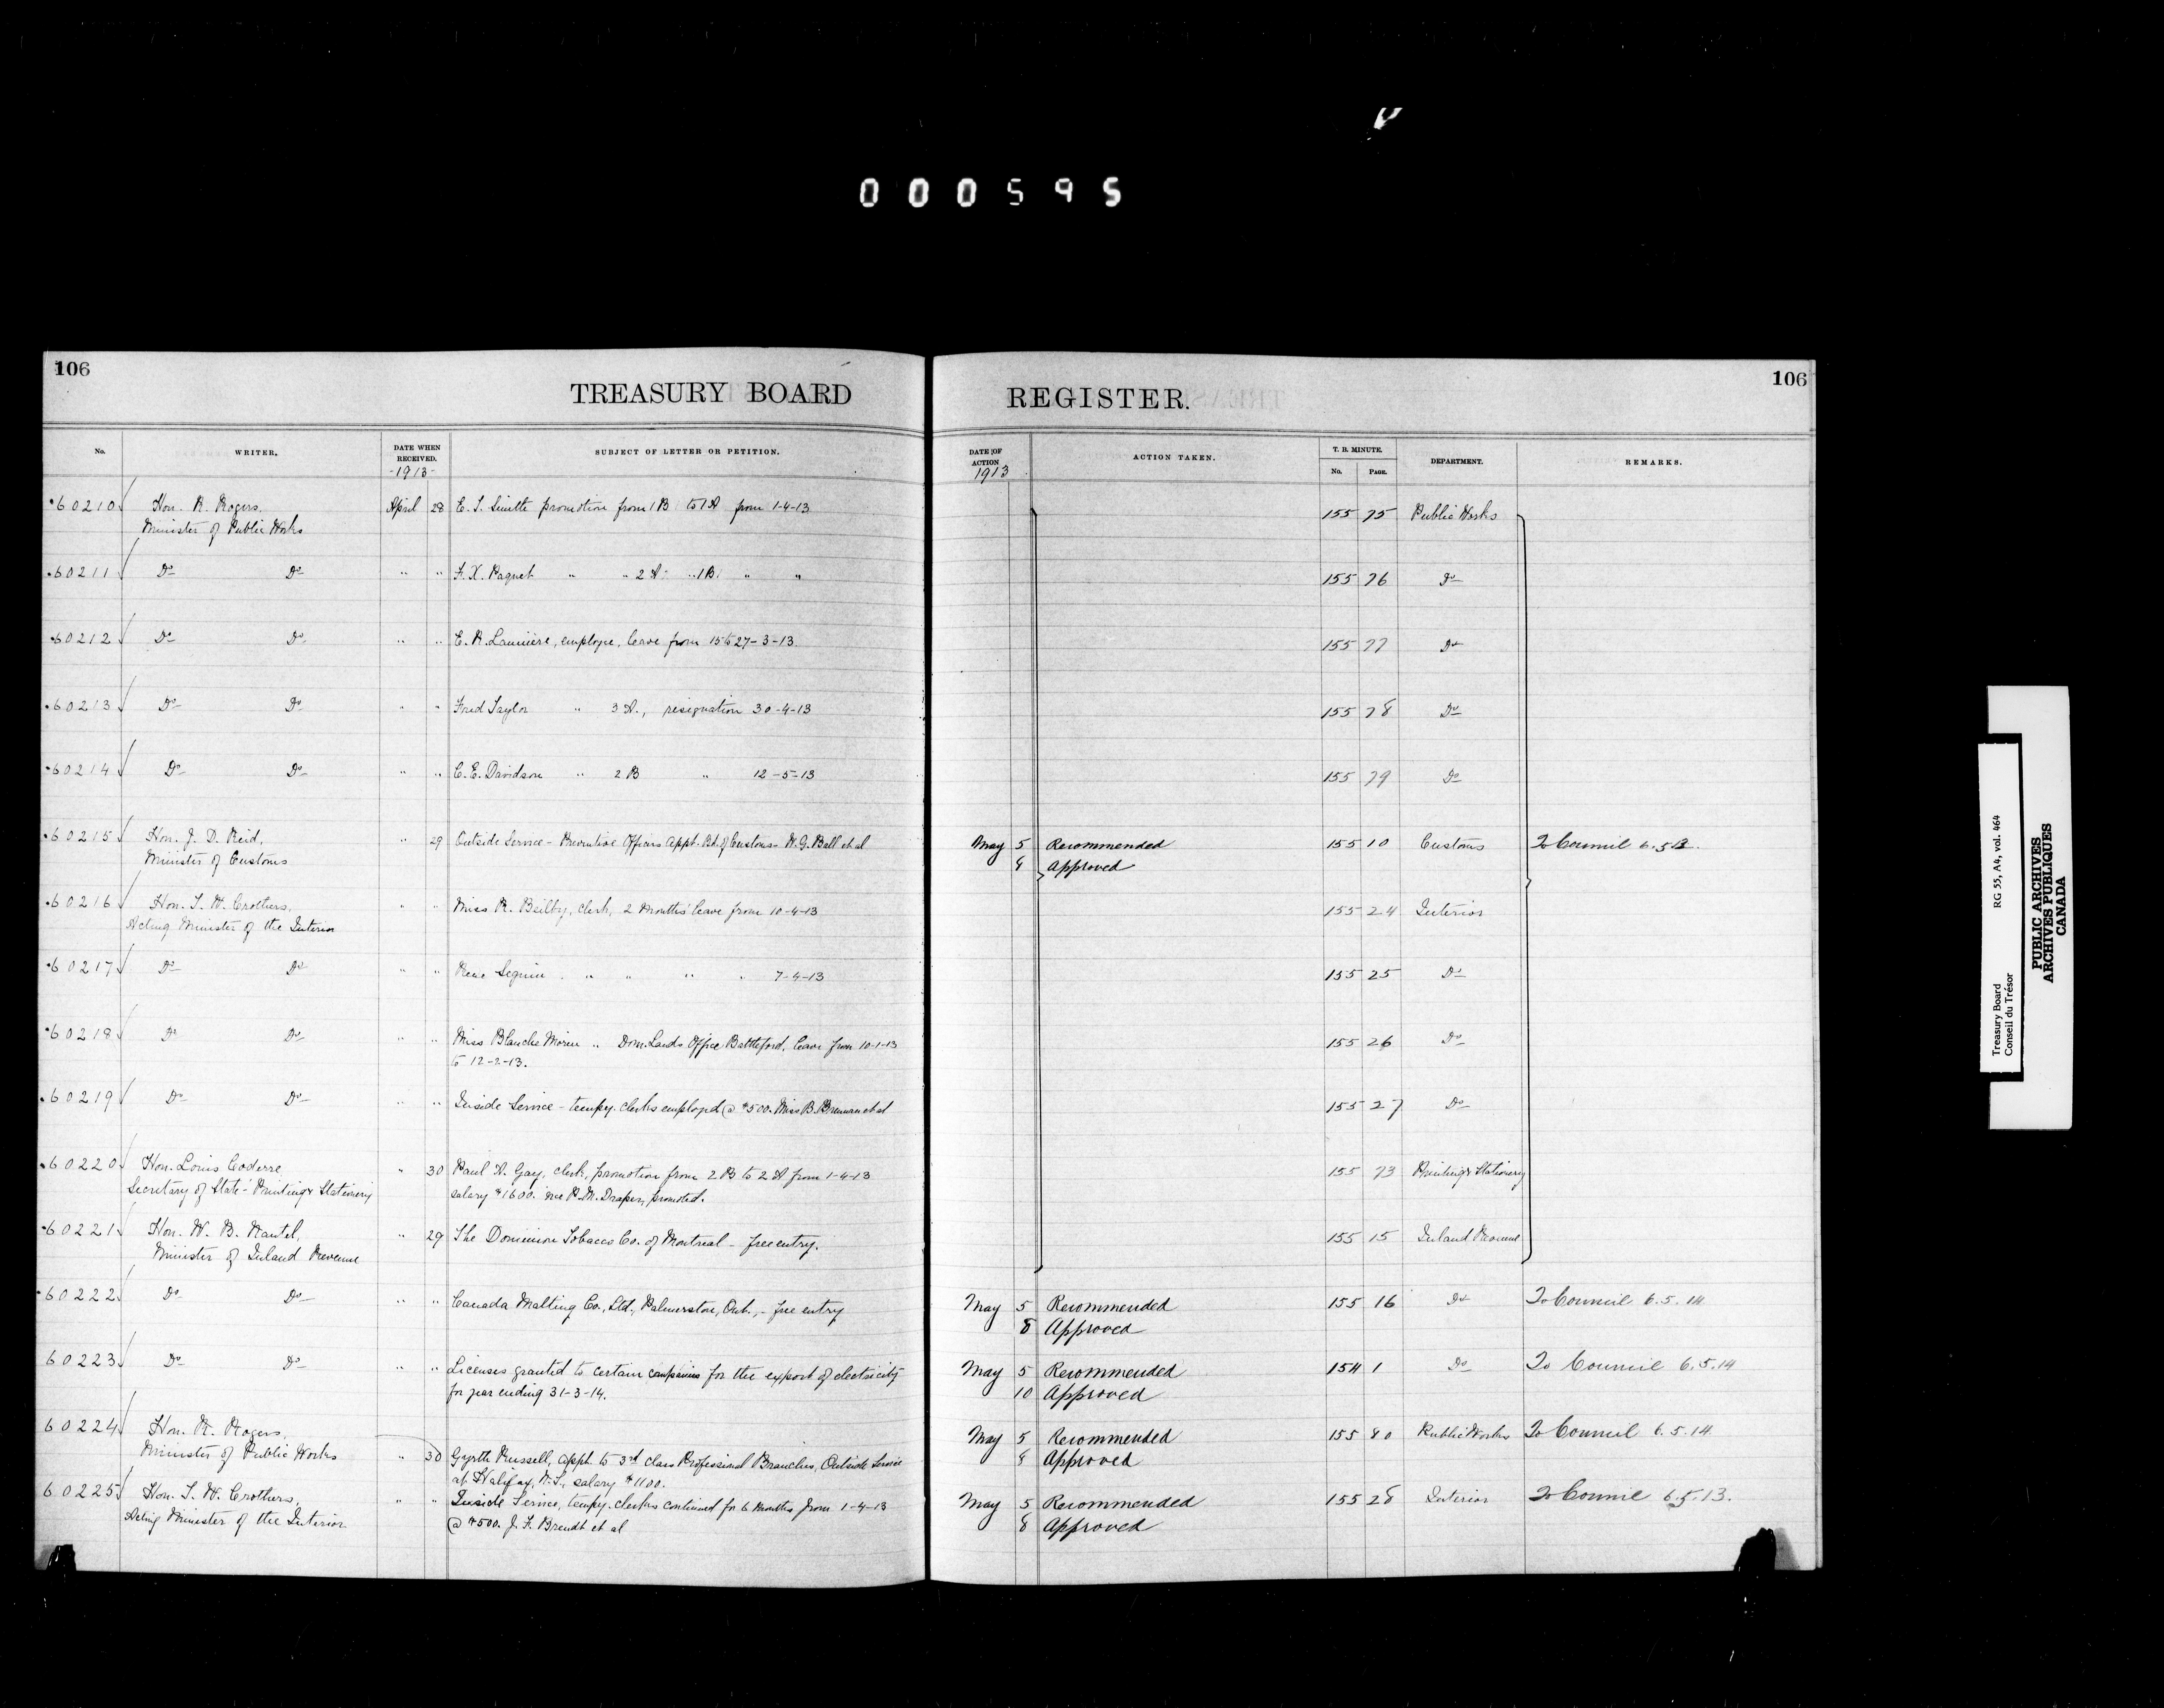 000595
106
TREASURY BOARD
No. WRITER. DATE WHEN RECEIVED. SUBJECT OF LETTER OR PETITION.
-1913-
60210 Hon. R. Rogers, April 28 E. L. Smith promotion from 1B to 1A from 1-4-13
Minister of Public Works
60211 Do Do " " F. X. Paquet " " 2A " 1B " "
60212 Do Do " " E. R. employee, leave from 15 to 27-3-13.
60213 Do Do " " Fred Taylor " 3A., resignation 30-4-13
60214 Do Do " " C. E. Davidson " 2B " 12-5-13
60215 Hon. J. D. Reid, " 29 Outside Service - Preventive Officers appt. Bd. of Customs - W. G. Ball et al
Minister of Customs
60216 Hon. T. W. Crothers, " " Miss R. Beilby, clerk, 2 months' leave from 10-4-13
Acting Minister of the Interior
60217 Do Do " " Rene Seguin " " " " 7-4-13
60218 Do Do " " Miss Blanche " Dom. Lands Office Battleford, leave from 10-1-13
to 12-2-13.
60219 Do Do " " Inside Service - tempy. clerks employed @ $500. Miss B. Brennan et al
60220 Hon. Louis Coderre, " 30 Paul A. Gay, clerk, promotion from 2B to 2A from 1-4-13
Secretary of State - Printing & Stationery salary $1600. vice P. M. Draper, promoted.
60221 Hon. W. B. Nantel, " 29 The Dominion Tobacco Co. of Montreal - free entry.
Minister of Inland Revenue
60222 Do Do " " Canada Malting Co., Ltd., Palmerston, Ont., - free entry
60223 Do Do " " Licenses granted to certain companies for the export of electricity
for year ending 31-3-14.
60224 Hon. R. Rogers,
Minister of Public Works " 30 Gyrth Russell, appt. to 3rd class Professional Branches, Outside Service
at Halifax, N.S., salary $1100.
60225 Hon. T. W. Crothers, " " Inside Service, tempy. clerks continued for 6 months from 1-4-13
Acting Minister of the Interior @ $500. J. F. Brendt et al
106
REGISTER.
DATE OF ACTION ACTION TAKEN. T. B. MINUTE. DEPARTMENT. REMARKS.
1913 No. PAGE.
155 75 Public Works
155 76 Do
155 77 Do
155 78 Do
155 79 Do
May 5 Recommended 155 10 Customs To Council 6.5.13.
8 Approved
155 24 Interior
155 25 Do
155 26 Do
155 27 Do
155 73 Printing & Stationery
155 15 Inland Revenue
May 5 Recommended 155 16 Do To Council 6.5.14
8 Approved
May 5 Recommended 154 1 Do To Council 6.5.14
10 Approved
May 5 Recommended 155 80 Public Works To Council 6.5.14
8 Approved
May 5 Recommended 155 28 Interior To Council 6.5.13.
8 Approved
Treasury Board RG 55, A4, vol. 464
Conseil du Trésor
PUBLIC ARCHIVES
ARCHIVES PUBLIQUES
CANADA